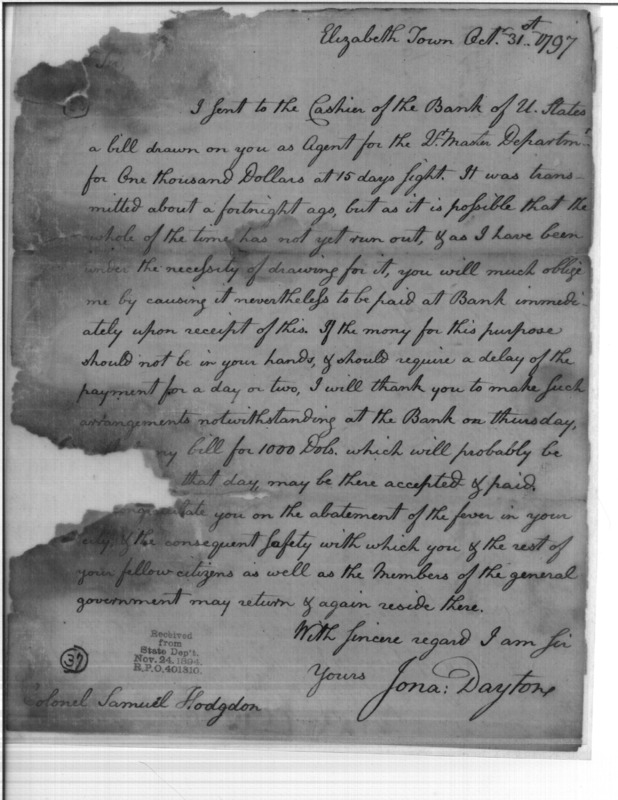 Elizabeth Town Oct. 31st. 1797
I sent to the Cashier of the Bank of U. States
a bill drawn on you as Agent for the Qr. Master Departmt.
for One thousand Dollars at 15 days sight. It was trans-
mitted about a fortnight ago, but as it is possible that the
whole of the time has not yet run out, & as I have been
under the necessity of drawing for it, you will much oblige
me by causing it nevertheless to be paid at Bank immedi-
ately upon receipt of this. If the mony for this purpose
should not be in your hands, & should require a delay of the
payment for a day or two, I will thank you to make such
arrangements notwithstanding at the Bank on thursday,
my bill for 1000 Dols. which will probably be
that day, may be there accepted & paid.
you on the abatement of the fever in your
city, & the consequent safety with which you & the rest of
your fellow citizens as well as the Members of the general
government may return & again reside there.
With sincere regard I am Sir
Yours Jona: Dayton
Received
from
State Dep't.
Nov. 24, 1894.
R.P.O. 401810.
37
Colonel Samuel Hodgdon